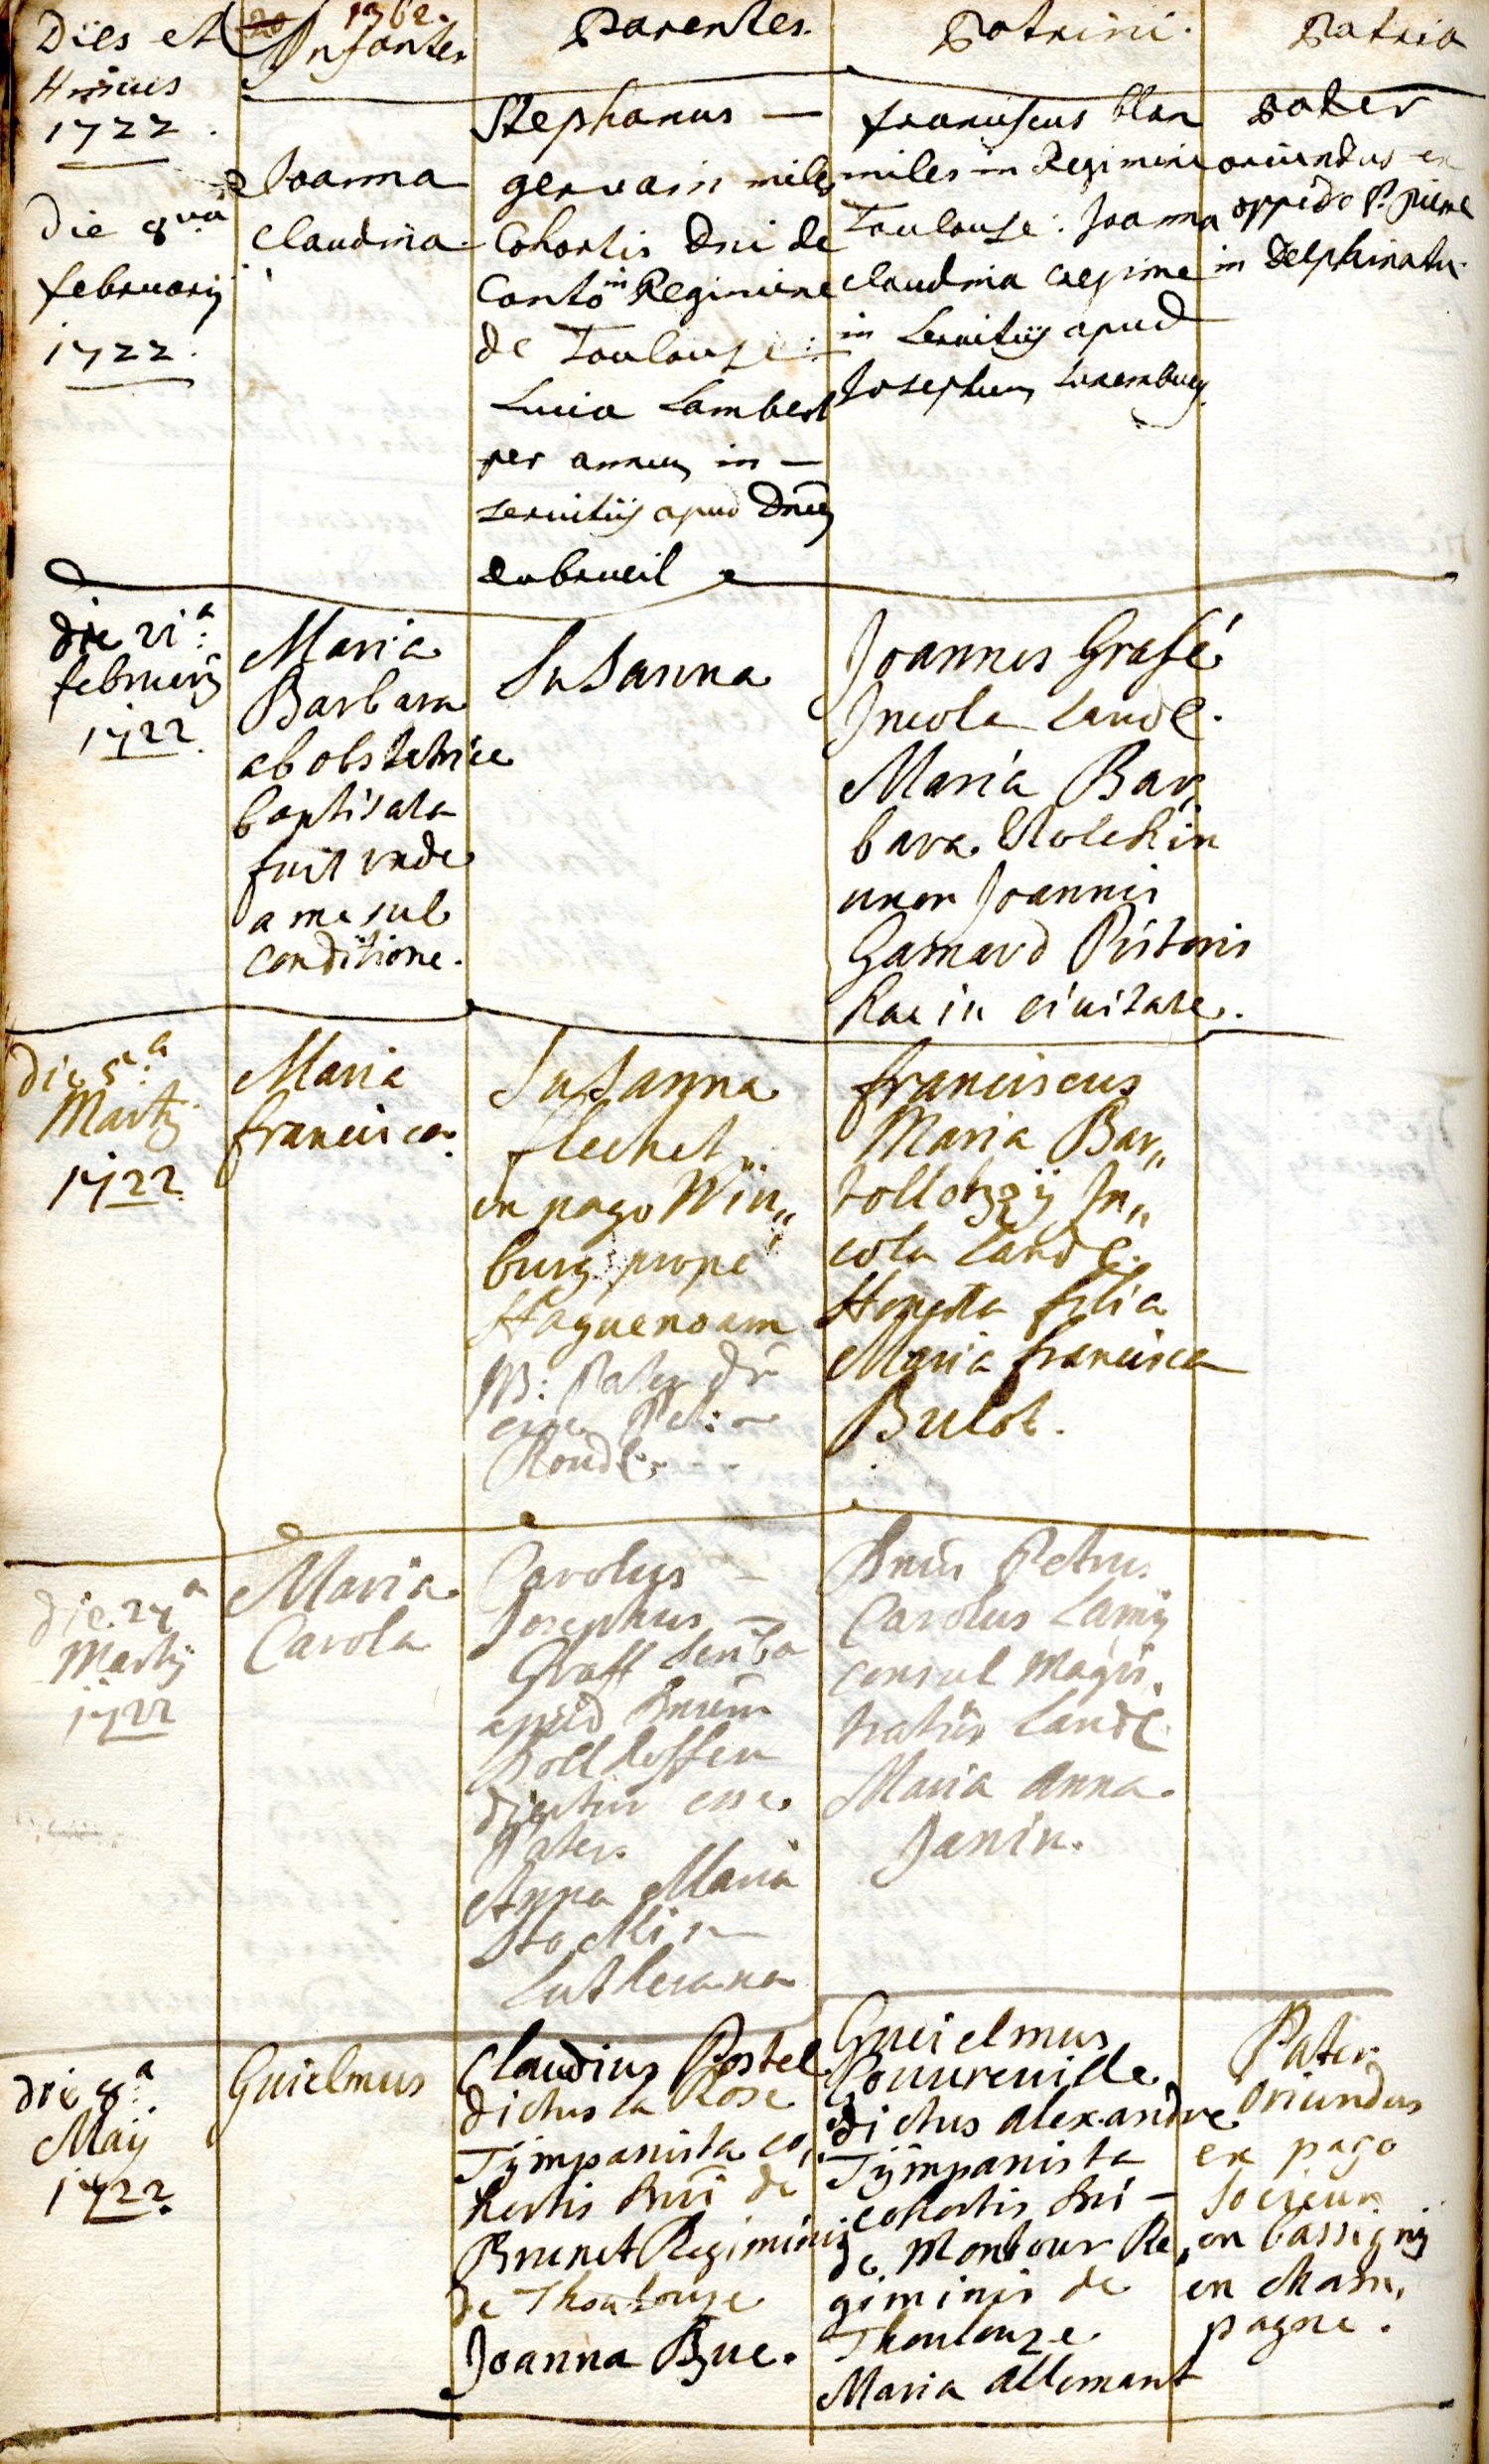 Dies et
Annus
1722.
1762.
Infantes
Parentes.
Patrini.
Patria
die 8va
february
1722.
Joanna
claudina
Stephanus —
gervain miles
Cohortis Dni de
Canto in Regimine
de Toulouse:
Lucia Lambert
per annum in —
servitiis apud Dnum
dubrueil
franciscus blan
miles in Regimine
Toulouse: Joanna
claudina
in servitiis apud
Josephum Luxemburg.
pater
oriundus ex
oppido St. pierre
in Delphinatu.
die 21a:
february
1722.
Maria
Barbara
ab obstetrice
baptisata
fuit unde
a me sub
conditione.
Susanna
Joannes Grafé
Incola Land.
Maria Bar„
bara
uxor Joannis
Gamard Pistoris
hac in civitate.
die 5a:
Martij
1722.
Maria
francisca.
Susanna
flechet
ex pago Win„
burg prope
Haguenoam
NB: Pater dr
esse Pet:
franciscus
Maria Bar„
In„
cola Land.
Honesta filia
Maria francisca
Bulot.
die 24a
Martij
1722
Maria
Carola
Carolus —
Josephus —
Graff scriba
apud Dnum
Bollhoffen
dicitur esse
Pater.
Anna Maria
Stocklin
Lutherana
Dnus Petrus
Carolus Lamy
consul Magis„
tratus Land.
Maria Anna
Janin.
die 8a:
Maij
1722.
Guielmus
Claudius Postel
dictus la Rose
Tympanista co„
hortis Dni de
Brunet Regiminis
de Thoulouze
Joanna Bue.
Gueielmus
Couureuille
dictus Alexandre
Tympanista
cohortis Dni —
de Montour Re„
giminis de
Thoulouze
Maria Allemant
Pater
Oriundus
ex pago
en Bassigny
en Cham„
pagne.